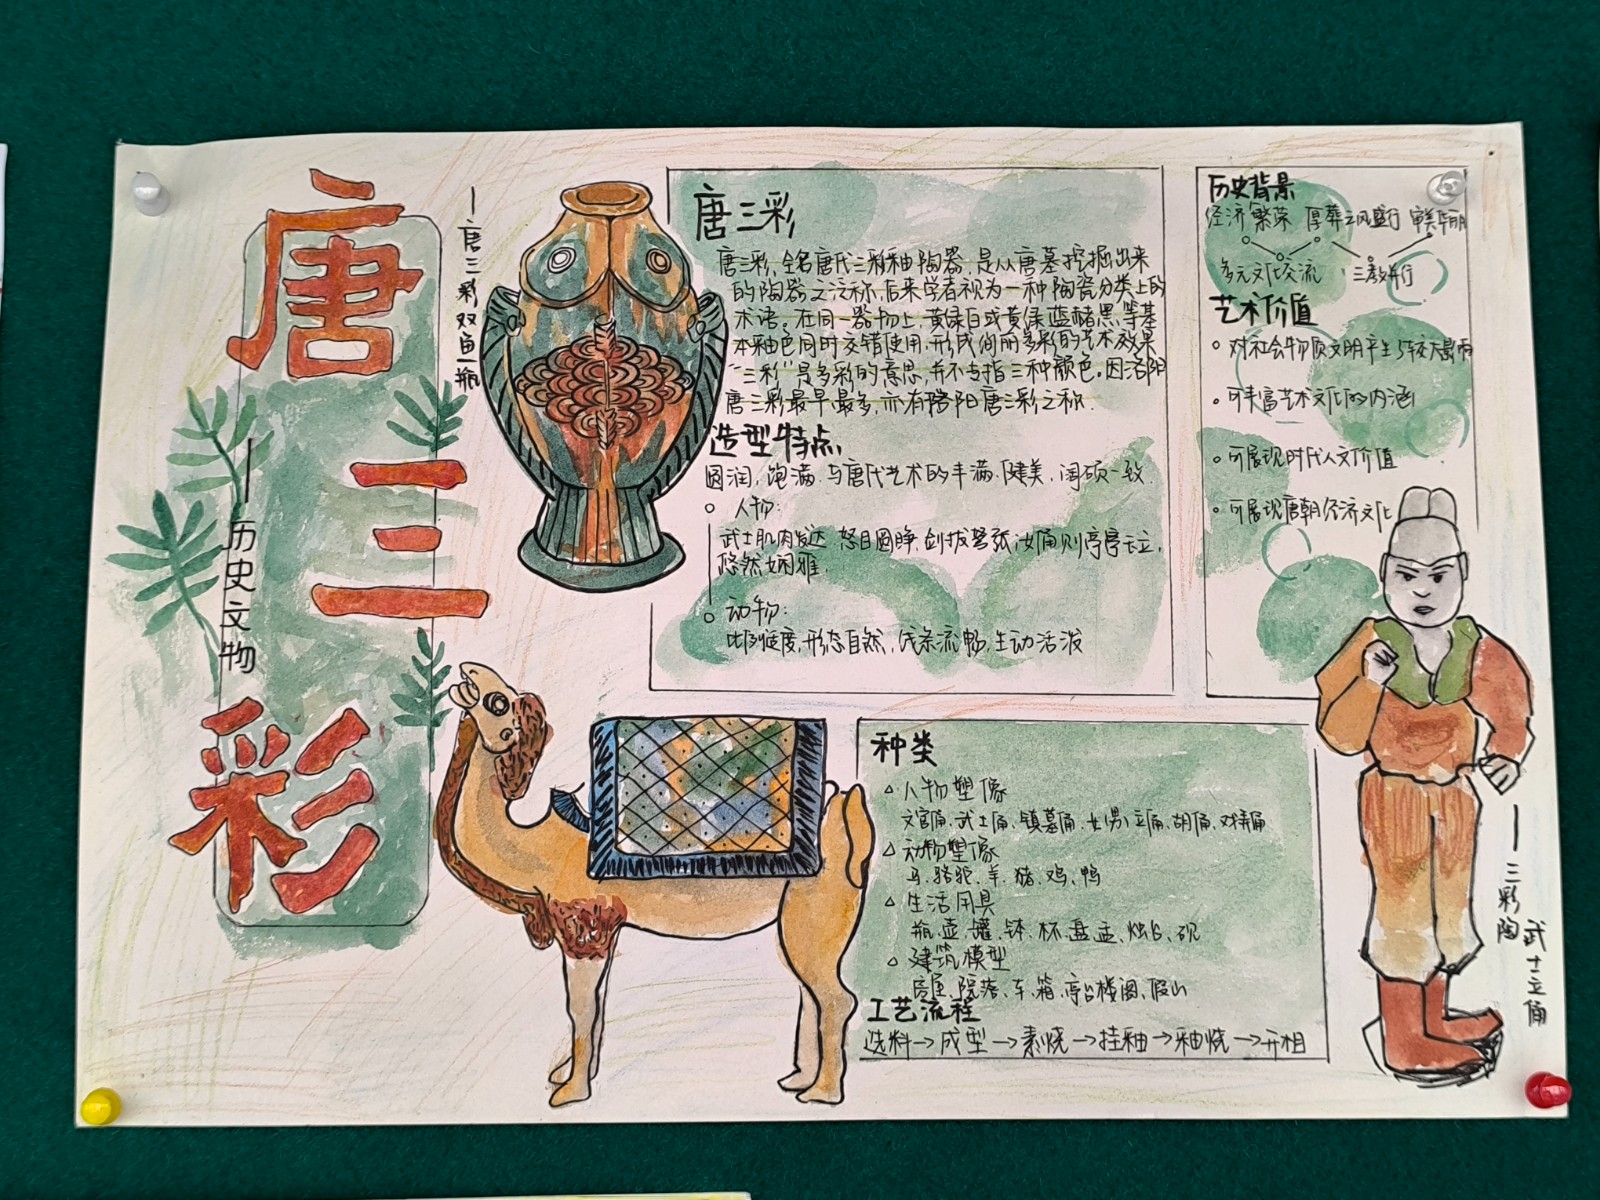 唐三彩
——历史文物
——唐三彩双鱼瓶
唐三彩
唐三彩,全名唐代三彩釉陶器,是从唐墓挖掘出来
的陶器之泛称,后来学者视为一种陶瓷分类上的
术语。在同一器物上,黄绿白或黄绿蓝赭黑等基
本釉色同时交错使用,形成绚丽多彩的艺术效果
"三彩"是多彩的意思,并不专指三种颜色。因洛阳
唐三彩最早最多,亦有洛阳唐三彩之称.
造型特点
圆润,饱满.与唐代艺术的丰满.健美.阔硕一致.
人物:
武士肌肉发达,怒目圆睁,剑拔弩张,女俑则亭亭玉立,
悠然娴雅.
动物:
比例适度,形态自然,线条流畅,生动活泼
历史背景
经济繁荣 厚葬之风盛行 审美华丽
多元文化交流 三教并行
艺术价值
对社会物质文明产生了较大影响
可丰富艺术文化的内涵
可展现时代人文价值
可展现唐朝经济文化
种类
人物塑像
文官俑、武士俑、镇墓俑、女(男)立俑、胡俑、对棒俑
动物塑像
马、骆驼、羊、猪、鸡、鸭
生活用具
瓶、壶、罐、钵、杯、盘、盂、烛台、砚
建筑模型
房屋、院落、车、箱、亭台楼阁、假山
工艺流程
选料→成型→素烧→挂釉→釉烧→开相
——三彩陶
武士立俑